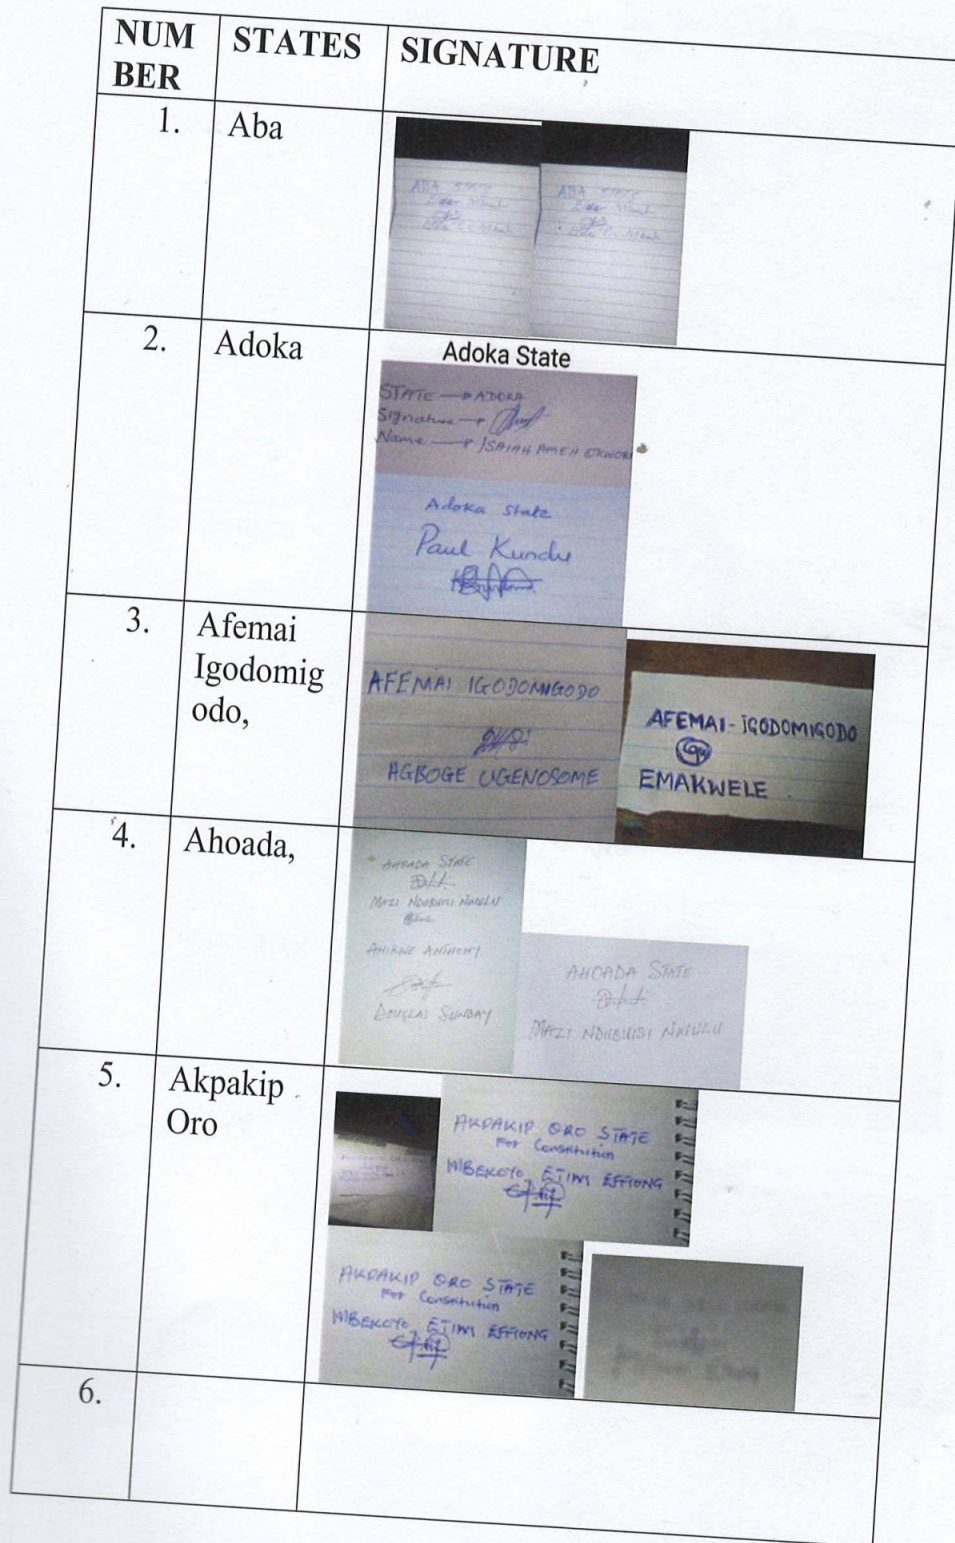 NUM
BER
STATES
SIGNATURE
1.
Aba
ABA STATE
ABA STATE
2.
Adoka
Adoka State
STATE → ADOKA
Signature →
Name → ISAIAH AMEH OKWORI
Adoka state
Paul Kundu
3.
Afemai
Igodomig
odo,
AFEMAI IGODOMIGODO
AGBOGE UGENOSOME
AFEMAI-IGODOMIGODO
EMAKWELE
4.
Ahoada,
AHOADA STATE
MAZI NDUBUISI NWULU
ANTHONY
DOUGLAS SUNDAY
AHOADA STATE
MAZI NDUBUISI NWULU
5.
Akpakip
Oro
AKPAKIP ORO STATE
For Constitution
MBEKOYO, ETIM EFFIONG
AKPAKIP ORO STATE
For Constitution
MBEKOYO, ETIM EFFIONG
6.